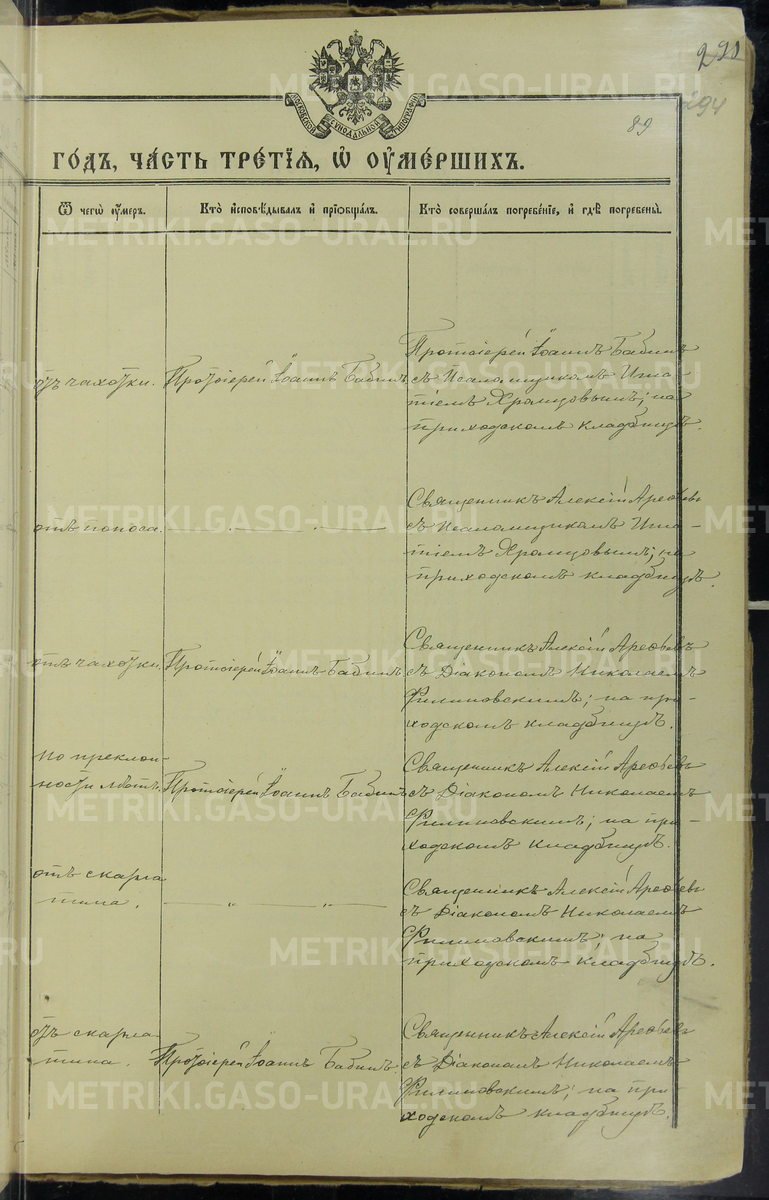 291
294
89
МОСКОВСКОЙ СѴНОДАЛЬНОЙ ТИПОГРАФІИ
ГО́ДЪ, ЧА́СТЬ ТРЕ́ТІѦ, Ѽ ОУ҆МЕ́РШИХЪ.
Ѿ чегѡ̀ оу҆́меръ.
Кто̀ и҆сповѣ́дывалъ и҆ прїѡбща́лъ.
Кто̀ соверша́лъ погребе́нїе, и҆ гдѣ̀ погребены̀.
отъ чахотки.
Протоіерей Іоаннъ Бабинъ
Протоіерей Іоаннъ Бабинъ
съ Псаломщикомъ Игна-
тіемъ Храмцовымъ; на
приходскомъ кладбищѣ.
отъ поноса.
— " — " —
Священникъ Алексій Арефьевъ
съ Псаломщикомъ Игна-
тіемъ Храмцовымъ; на
приходскомъ кладбищѣ.
отъ чахотки.
Протоіерей Іоаннъ Бабинъ
Священникъ Алексій Арефьевъ
съ Діакономъ Николаемъ
Филиповскимъ; на при-
ходскомъ кладбищѣ.
по преклон-
ности лѣтъ.
Протоіерей Іоаннъ Бабинъ
Священникъ Алексій Арефьевъ
съ Діакономъ Николаемъ
Филиповскимъ; на при-
ходскомъ кладбищѣ.
отъ скарла
тина.
— " — " —
Священникъ Алексій Арефьевъ
съ Діакономъ Николаемъ
Филиповскимъ; на
приходскомъ кладбищѣ.
отъ скарла
тина.
Протоіерей Іоаннъ Бабинъ
Священникъ Алексій Арефьевъ
съ Діакономъ Николаемъ
Филиповскимъ; на при
ходскомъ кладбищѣ.
METRIKI.GASO-URAL.RU